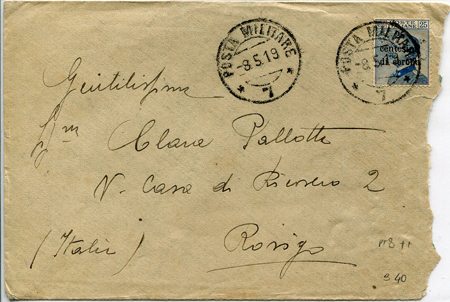 POSTA MILITARE
-8.5.19
* 7 *
POSTA MILITARE
-8.5.19
* 7 *
25
centesimi
di corona
Gentilissima
Clara Pallotti
V. Casa di Ricovero 2
(Italia) Rovigo